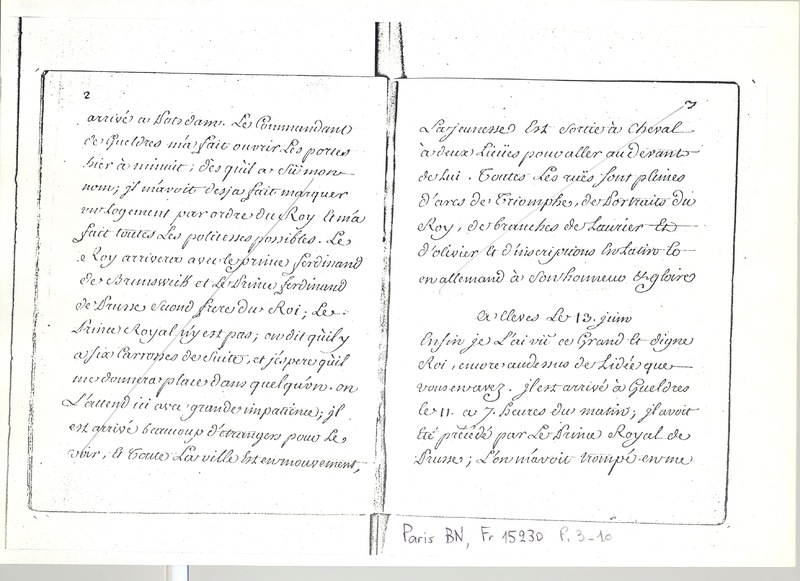 2
arrivé a Potsdam. Le Commandant
de Gueldres m'a fait ouvrir Les portes
hier à minuit; des qu'il a Sû mon
nom; jl m'avoit desja fait marquer
un logement par ordre du Roy et m'a
fait toutes Les politesses possibles. Le
Roy arrivera avec le prince ferdinand
de Brunsweik et Le Prince ferdinand
de Prusse Second frere du Roi; Le
Prince Royal n'y est pas; on dit qu'il y
a six Carrosses de Suite, et j'espere qu'il
me donnera place dans quelqu'un. on
L'attend ici avec grande impatience; jl
est arrivé beaucoup d'étrangers pour Le
voir, et Toute La ville Est en mouvement,
3
La jeunesse Est Sortie à Cheval
à deux Lieües pour aller au devant
de lui. Toutes Les rües Sont pleines
d'arcs de Triomphe, de Portraits du
Roy, de branches de Laurier Et
d'olivier Et d'inscriptions En Latin Et
en allemand à Son honneur & gloire
A Cleves Le 13. juin
Enfin je L'ai vû ce Grand Et digne
Roi, encore audessus de L'idée que
vous en avez. jl est arrivé à Gueldres
le 11. a 7. heures du matin; jl avoit
Eté précédé par Le Prince Royal de
Prusse; L'on m'avoit trompé en me
Paris BN, Fr 15230 P. 3-10